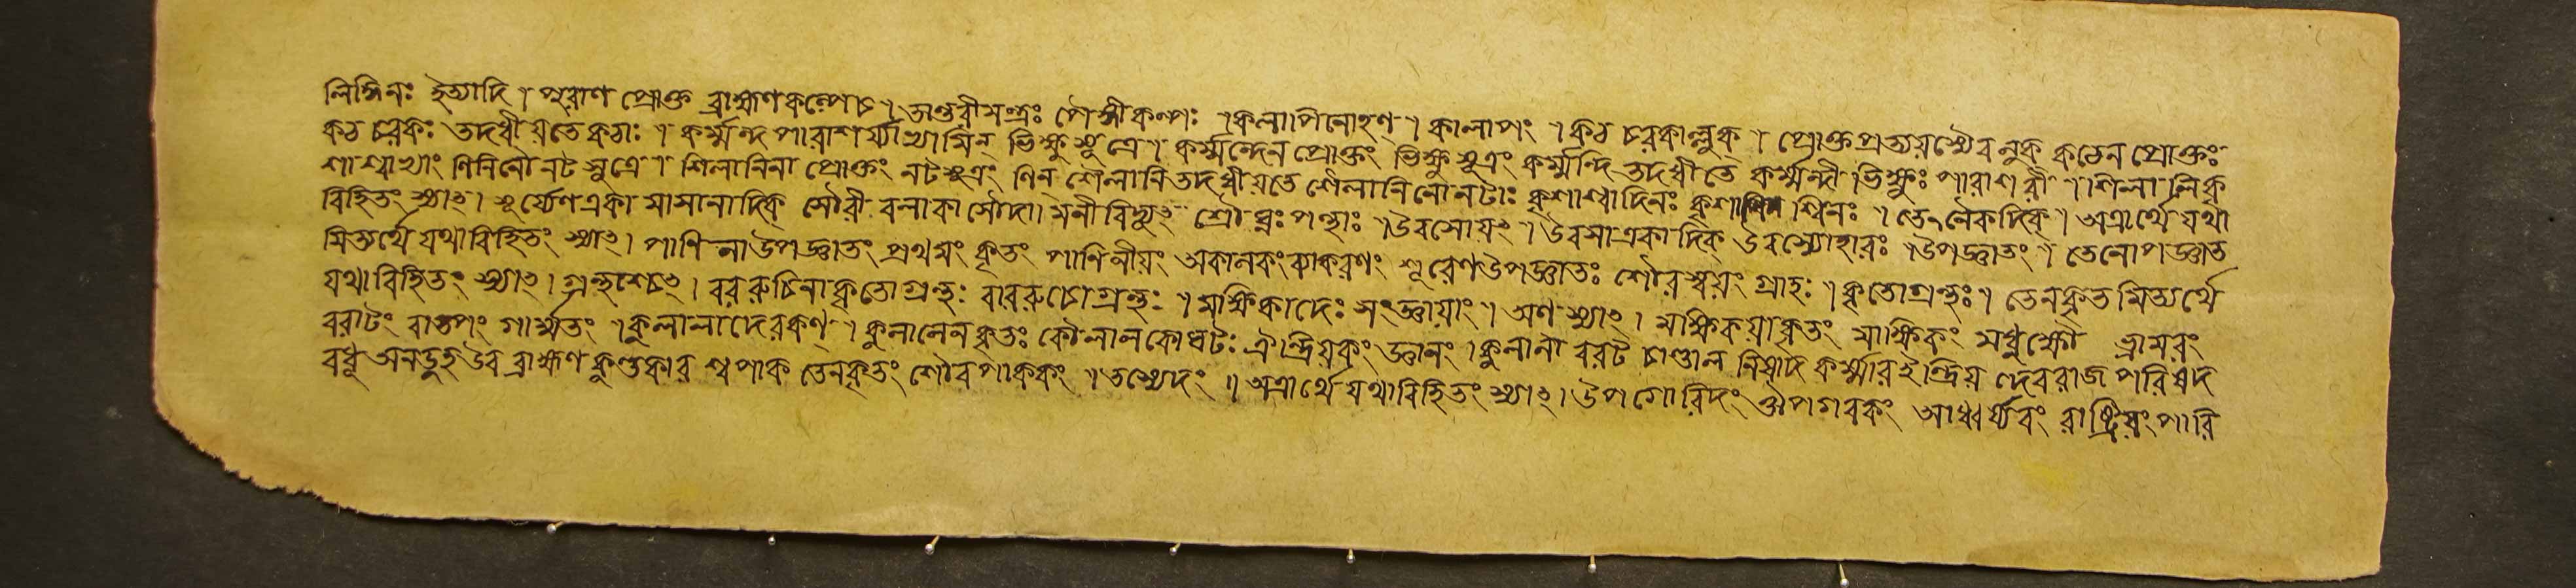 লিঙ্গিনঃ ইত্যাদি । পুরাণ প্রোক্ত ব্রাহ্মণকল্পেচ । অণ্ডবীমন্ত্রঃ পৌঙ্গীকল্পঃ । কলাপিনোহণ্ । কালাপং । কঠ চরকাল্লুক্ । প্রোক্তপ্রত্যয়স্যৈব লুক্ কঠেন প্রোক্তঃ
কঠ চরকঃ তদধীয়তে কঠাঃ । কর্ম্মন্দ পারাশর্য্যাভ্যামিন্ ভিক্ষু সূত্রে । কর্ম্মন্দেন প্রোক্তং ভিক্ষু সূত্রং কর্ম্মন্দি তদধীতে কর্ম্মন্দী ভিক্ষুঃ পারাশরী । শিলালিকৃ
শাশ্বাভ্যাং ণিনিনৌ নট সূত্রে । শিলালিনা প্রোক্তং নট সূত্রং ণিন শৈলালি তদধীয়তে শৈলালিনো নটাঃ কৃশাশ্বাদিনঃ কৃশাশ্বিনঃ । তেনৈকদিক্ । অত্রার্থে যথা
বিহিতং স্যাৎ । সূর্য্যেণ একা সামানাদিক্ সৌরী বলাকা সৌদামনী বিদ্যুৎ শ্রৌঘ্নঃ পন্থাঃ । উরসোযং । উরসা একাদিক্ উরস্যোহারঃ । উপজ্ঞাতং । তেনোপজ্ঞাত
মিত্যর্থে যথাবিহিতং স্যাৎ । পাণিনা উপজ্ঞাতং প্রথমং কৃতং পাণিনীয়ং অকালকংব্যাকরণং শূরেণ উপজ্ঞাতঃ শৌর স্বয়ং গ্রাহঃ । কৃতোগ্রন্থঃ । তেন কৃত মিত্যর্থে
যথাবিহিতং স্যাৎ । গ্রন্থশ্চেৎ । বররুচিনা কৃতো গ্রন্থঃ বাররুচো গ্রন্থঃ । মাক্ষিকাদেঃ সংজ্ঞায়াং । অণ স্যাৎ । মক্ষিকয়া কৃতং মাক্ষিকং মধু ক্ষৌ ভ্রামরং
বরাটং বাতপং গার্ম্মুতং । কুলালাদেরকণ্ । কুলালেন কৃতঃ কৌলালকোঘটঃ ঐন্দ্রিয়কং জ্ঞানং । কুলাল বরট চাণ্ডাল নিষাদ কর্ম্মার ইন্দ্রিয় দেবরাজ পারিষদ
বধূ অনডুহ উব ব্রাহ্মণ কুণ্ডকার শ্বপাক তেনকৃতং শৌবপাককং । তস্যেদং ॥ অত্রার্থে যথাবিহিতং স্যাৎ । উপগোরিদং ঔপগবকং আধ্বর্য্যবং রাষ্ট্রিয়ং পারি